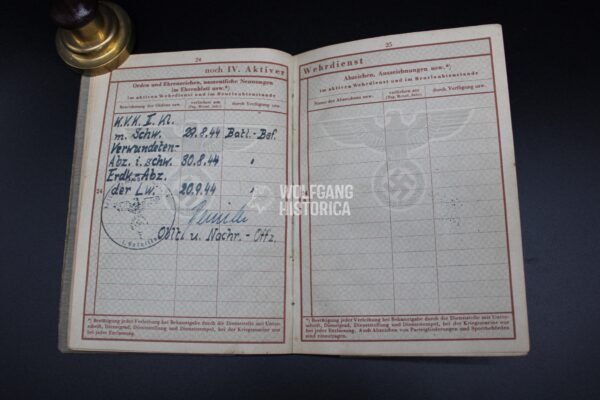 24
noch IV. Aktiver
Orden und Ehrenzeichen, namentliche Nennungen
im Ehrenblatt usw.*)
im aktiven Wehrdienst und im Beurlaubtenstande
Bezeichnung des Ordens usw.
verliehen am
(Tag, Monat, Jahr)
durch Verfügung usw.
K.V.K. II. Kl.
m. Schw. 29.8.44 Batl.-Bef.
Verwundeten-
Abz. i. schw. 30.8.44 "
Erdk.-Abz.
der Lw. 20.9.44 "
Obltl. u. Nachr.-Offz.
*) Bestätigung jeder Verleihung bei Behändigung durch die Dienststelle mit Unter-
schrift, Dienstgrad, Dienststellung und Dienststempel, bei der Kriegsmarine nur
bei jeder Entlassung.
25
Wehrdienst
Abzeichen, Auszeichnungen usw.*)
im aktiven Wehrdienst und im Beurlaubtenstande
Name des Abzeichens usw.
verliehen am
(Tag, Monat, Jahr)
durch Verfügung usw.
*) Bestätigung jeder Verleihung bei Behändigung durch die Dienststelle mit Unter-
schrift, Dienstgrad, Dienststellung und Dienststempel, bei der Kriegsmarine nur
bei jeder Entlassung. Auch Abzeichen von Parteigliederungen und Sportabzeichen
sind einzutragen.
WOLFGANG
HISTORICA